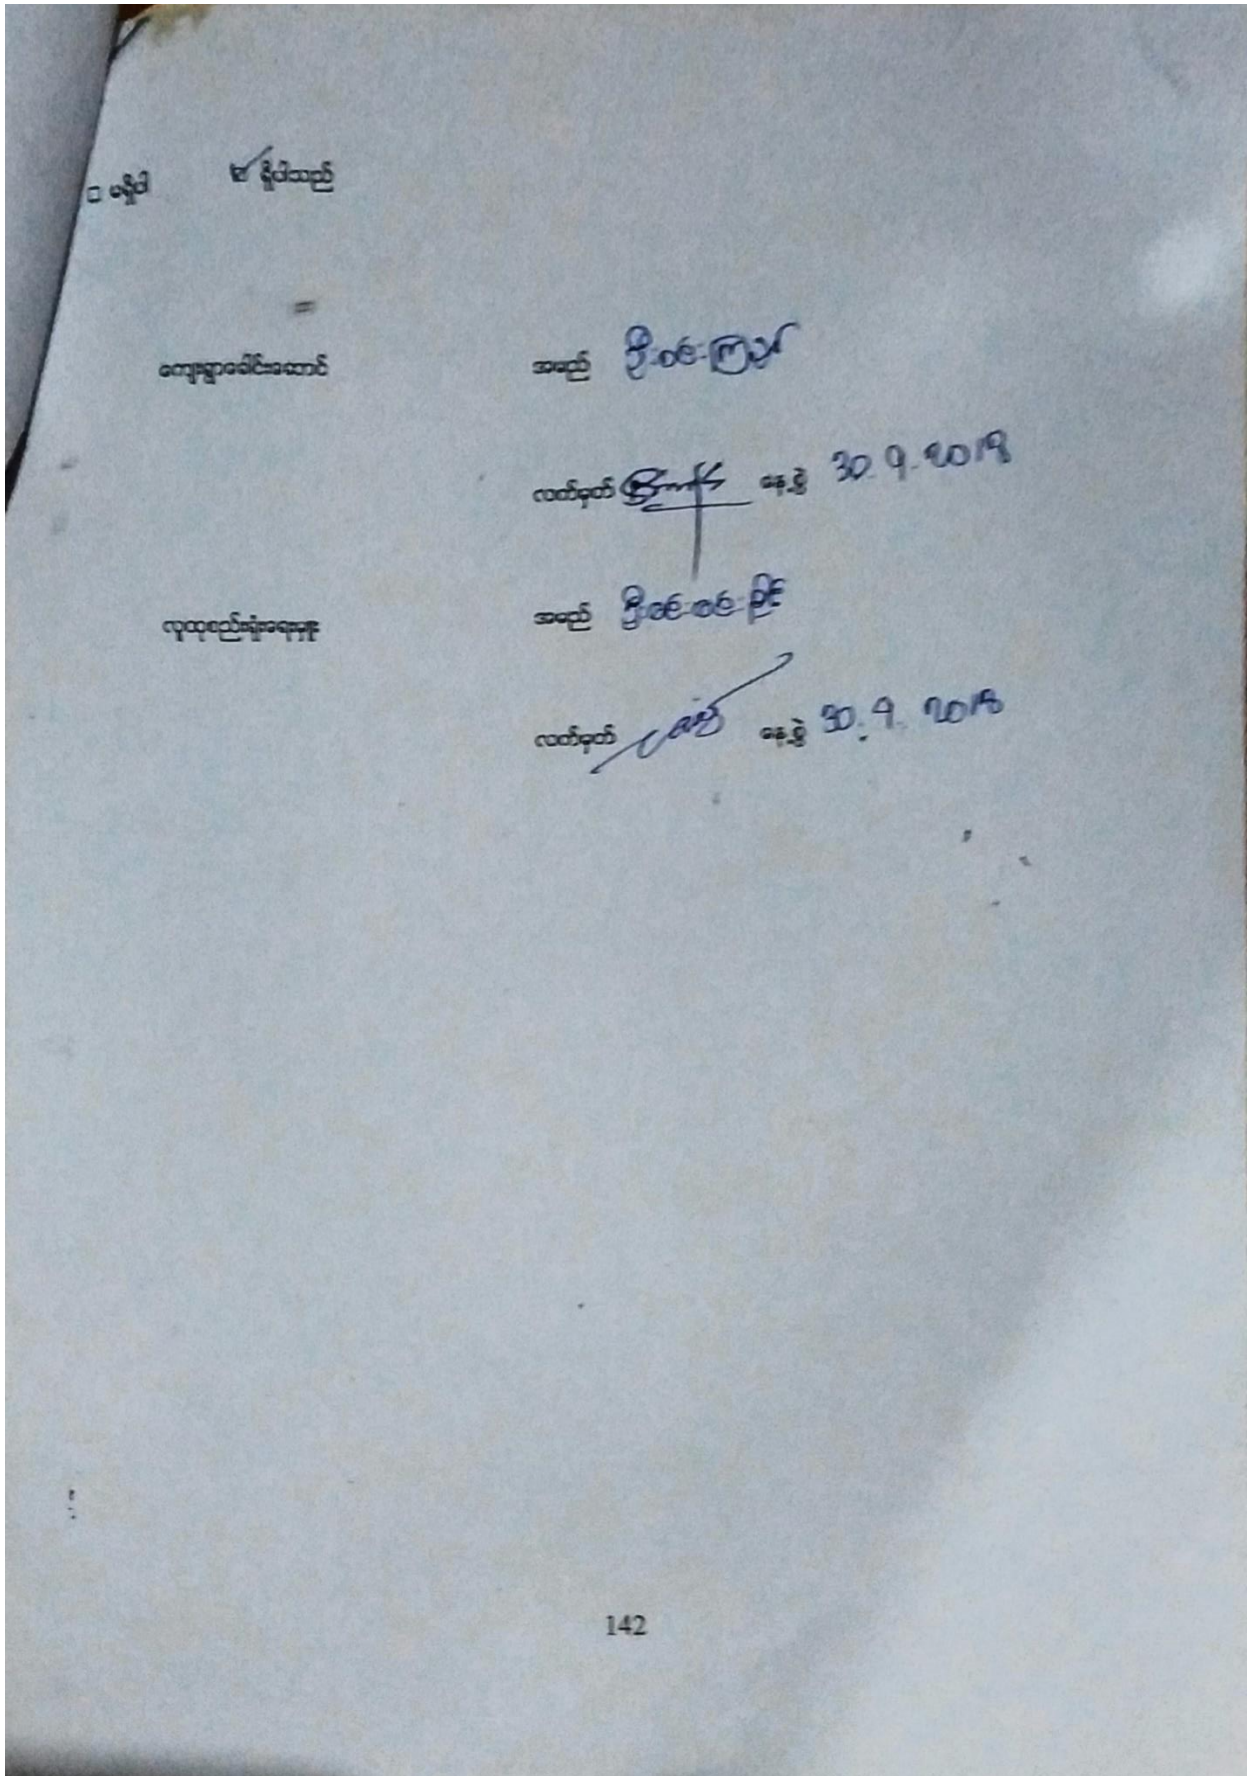 □ မရှိပါ ☑ ရှိပါသည်
ကျေးရွာခေါင်းဆောင် အမည် ဦးဝင်းကြည်
လက်မှတ် နေ့စွဲ 30.9.2018
လူထုစည်းရုံးရေးမှူး အမည် ဦးဝင်းဝင်းခိုင်
လက်မှတ် နေ့စွဲ 30.9.2018
142